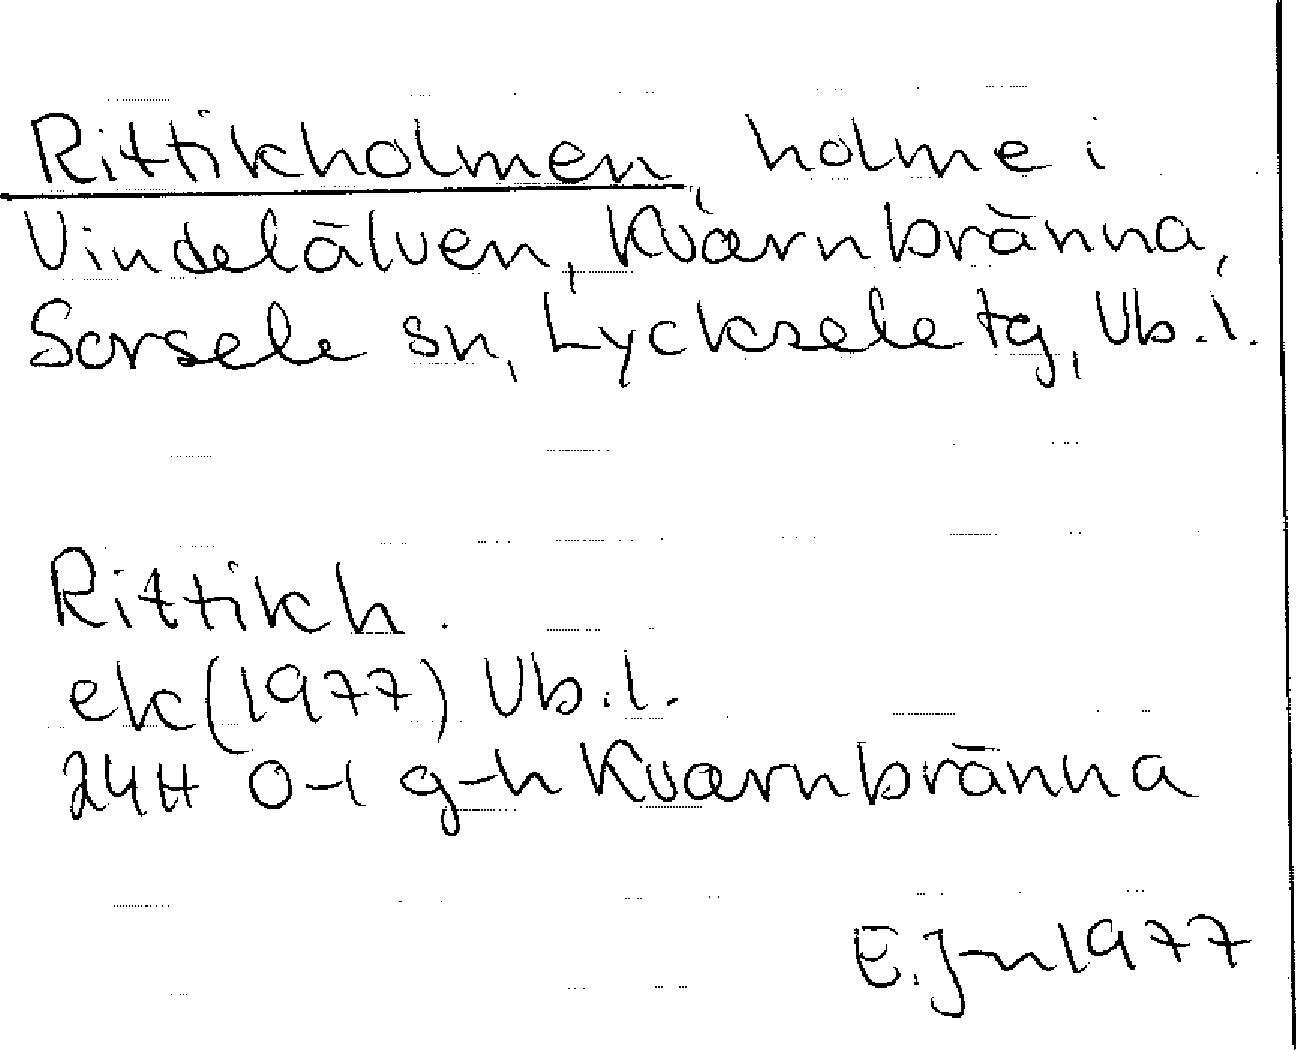 Rittikholmen, holme i
Vindelälven, Kvarnbränna,
Sorsele sn, Lycksele tg, Vb.l.
Rittikh.
ek (1977) Vb.l.
24H 0-1 g-h Kvarnbränna
E.J-n 1977